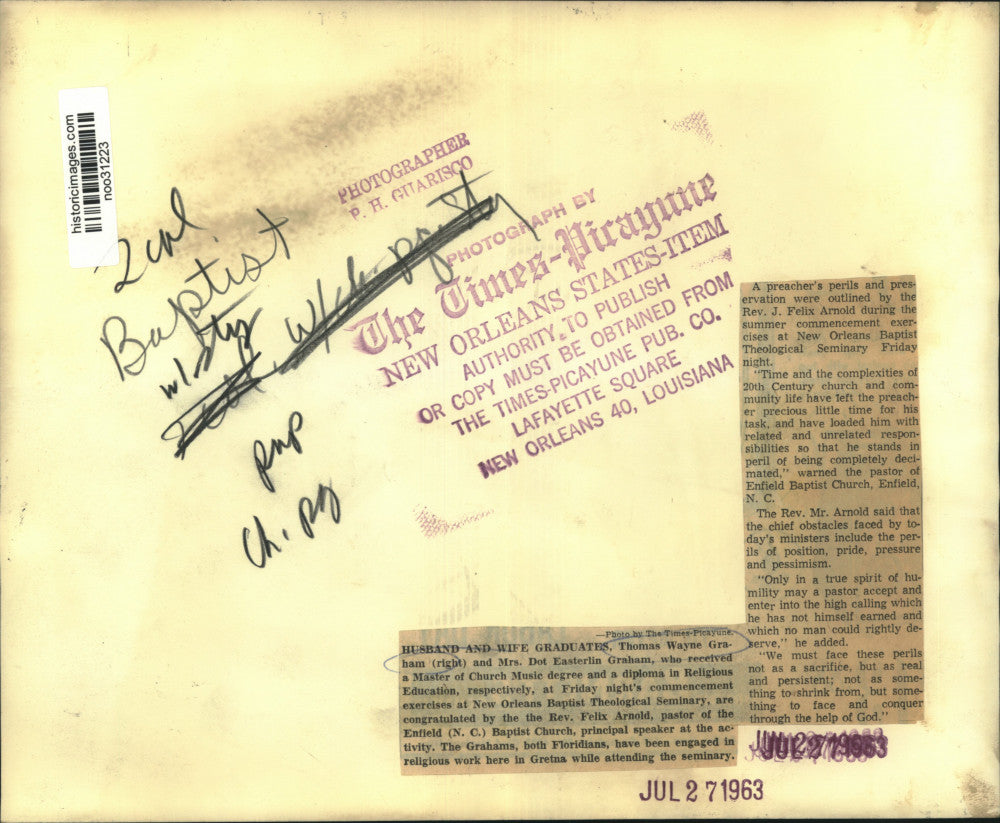 historicimages.com
noo31223
2 col.
Baptist
w/ sty
pnp
ch. pg
PHOTOGRAPHER
P. H. GUARISCO
PHOTOGRAPH BY
The Times-Picayune
NEW ORLEANS STATES-ITEM
AUTHORITY TO PUBLISH
OR COPY MUST BE OBTAINED FROM
THE TIMES-PICAYUNE PUB. CO.
LAFAYETTE SQUARE
NEW ORLEANS 40, LOUISIANA
A preacher's perils and pres-
ervation were outlined by the
Rev. J. Felix Arnold during the
summer commencement exer-
cises at New Orleans Baptist
Theological Seminary Friday
night.
"Time and the complexities of
20th Century church and com-
munity life have left the preach-
er precious little time for his
task, and have loaded him with
related and unrelated respon-
sibilities so that he stands in
peril of being completely deci-
mated," warned the pastor of
Enfield Baptist Church, Enfield,
N. C.
The Rev. Mr. Arnold said that
the chief obstacles faced by to-
day's ministers include the per-
ils of position, pride, pressure
and pessimism.
"Only in a true spirit of hu-
mility may a pastor accept and
enter into the high calling which
he has not himself earned and
which no man could rightly de-
serve," he added.
"We must face these perils
not as a sacrifice, but as real
and persistent; not as some-
thing to shrink from, but some-
thing to face and conquer
through the help of God."
—Photo by The Times-Picayune.
HUSBAND AND WIFE GRADUATES, Thomas Wayne Gra-
ham (right) and Mrs. Dot Easterlin Graham, who received
a Master of Church Music degree and a diploma in Religious
Education, respectively, at Friday night's commencement
exercises at New Orleans Baptist Theological Seminary, are
congratulated by the the Rev. Felix Arnold, pastor of the
Enfield (N. C.) Baptist Church, principal speaker at the ac-
tivity. The Grahams, both Floridians, have been engaged in
religious work here in Gretna while attending the seminary.
JUL 27 1963
JUL 2 7 1963